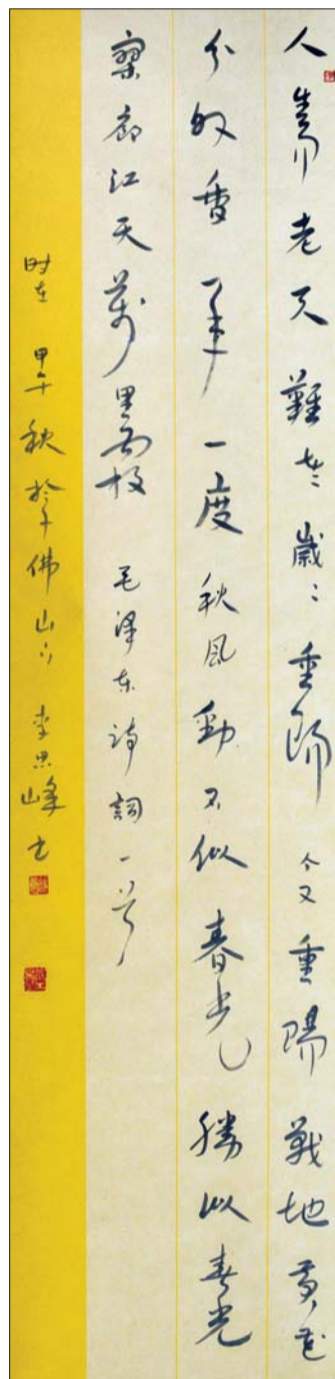 人生易老天難老歲〻重陽今又重陽戰地黃花
分外香一年一度秋風勁不似春光勝似春光
寥廓江天萬里霜 毛泽东詩詞一首
时在甲午秋於千佛山下 李峰书